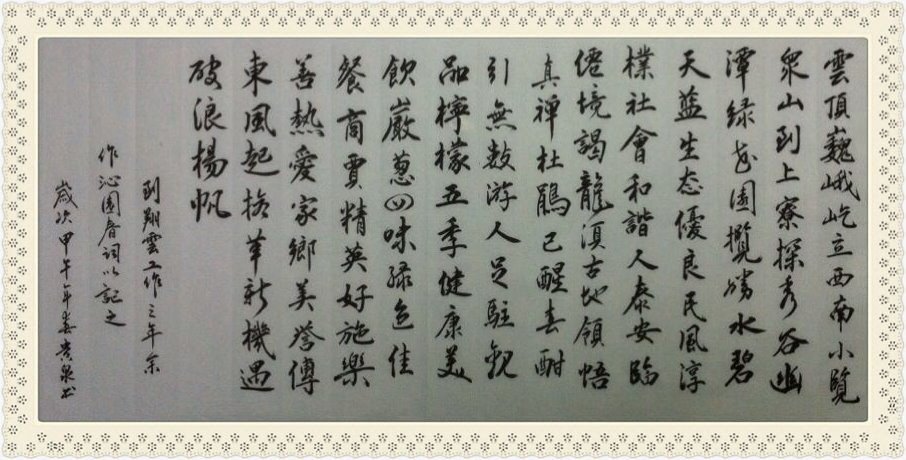 雲頂巍峨屹立西南小覽
眾山到上寮探秀谷幽
潭绿花園攬勝水碧
天蓝生态優良民風淳
樸社會和諧人泰安臨
僊境謁龍湏古地領悟
真禅杜鵑已醒春酣
引無数游人足駐観
品檸檬五季健康美
飲巖葱四味绿色佳
餐商賈精英好施樂
善熱愛家鄉美誉傳
東風起 革新機遇
破浪揚帆
到翔雲工作三年余
作沁園春詞以記之
歲次甲午年春贵泉书